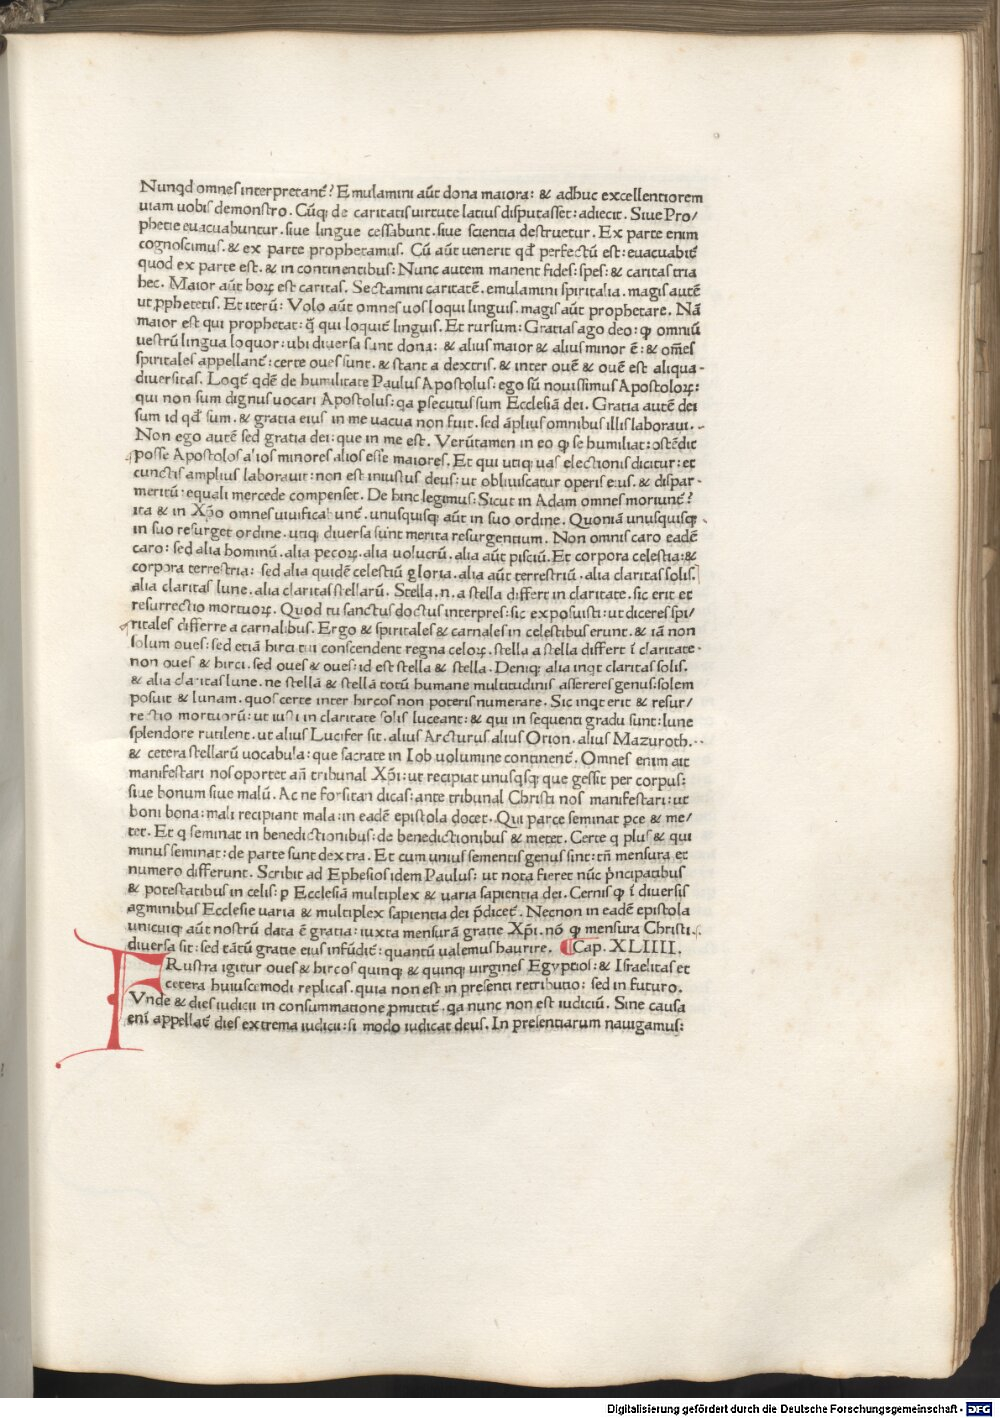 Nunqd omneſ interpretant̃? Emulamini aūt dona maiora: & adhuc excellentiorem
uiam uobiſ demonſtro. Cūq; de caritatiſ uirtute latiuſ diſputaſſet: adiecit. Siue Pro/
phetie euacuabuntur. ſiue lingue ceſſabunt. ſiue ſcientia deſtruetur. Ex parte enim
cognoſcimuſ. & ex parte prophetamuſ. Cū aūt uenerit qđ perfectū eſt: euacuabit̃
quod ex parte eſt. & in continentibuſ: Nunc autem manent fideſ: ſpeſ: & caritaſ tria
hec. Maior aūt hoꝝ eſt caritaſ. Sectamini caritatē. emulamini ſpiritalia. magiſ autē
ut ꝓphetetiſ. Et iterū: Volo aūt omneſ uoſ loqui linguiſ. magiſ aūt prophetare. Nā
maior eſt qui prophetat: q̄ qui loquit̃ linguiſ. Et rurſum: Gratiaſ ago deo: ꝙ omniū
ueſtrū lingua loquor: ubi diuerſa ſunt dona: & aliuſ maior & aliuſ minor ē: & om̄eſ
ſpiritaleſ appellant̃: certe oueſ ſunt. & ſtant a dextriſ. & inter ouē & ouē eſt aliqua-
diuerſitaſ. Loqt̃ qdē de humilitate Pauluſ Apoſtoluſ: ego ſū nouiſſimuſ Apoſtoloꝝ:
qui non ſum dignuſ uocari Apoſtoluſ: qa ꝑſecutuſ ſum Eccleſiā dei. Gratia autē dei
ſum id qđ ſum. & gratia eiuſ in me uacua non fuit. ſed āpliuſ omnibuſ illiſ laboraui.
Non ego autē ſed gratia dei: que in me eſt. Verūtamen in eo ꝙ ſe humiliat: oſtēdit
poſſe Apoſtoloſ alioſ minoreſ alioſ eſſe maioreſ. Et qui utiq; uaſ electioniſ dicitur: et
cunctiſ ampliuſ laborauit: non eſt iniuſtuſ deuſ: ut obliuiſcatur operiſ eiuſ. & diſpar-
meritū: equali mercede compenſet. De hinc legimuſ: Sicut in Adam omneſ moriunt̃?
ita & in Xp̄o omneſ uiuificabunt̃. unuſquiſq; aūt in ſuo ordine. Quoniā unuſquiſq;
in ſuo reſurget ordine. utiq; diuerſa ſunt merita reſurgentium. Non omniſ caro eadē
caro: ſed alia hominū. alia pecoꝝ. alia uolucrū. alia aūt piſciū. Et corpora celeſtia: &
corpora terreſtria: ſed alia quidē celeſtiū gloria. alia aūt terreſtriū. alia claritaſ ſoliſ.
alia claritaſ lune. alia claritaſ ſtellarū. Stella .n. a ſtella differt in claritate. ſic erit et
reſurrectio mortuoꝝ. Quod tu ſanctuſ doctuſ interpreſ: ſic expoſuiſti: ut dicereſ ſpi/
ritaleſ differre a carnalibuſ. Ergo & ſpiritaleſ & carnaleſ in celeſtibuſ erunt. & iā non
ſolum oueſ: ſed etiā hirci tui conſcendent regna celoꝝ. ſtella a ſtella differt ī claritate·
non oueſ & hirci. ſed oueſ & oueſ: id eſt ſtella & ſtella. Deniq; alia inqt claritaſ ſoliſ.
& alia claritaſ lune. ne ſtellā & ſtellā totū humane multitudiniſ aſſerereſ genuſ: ſolem
poſuit & lunam. quoſ certe inter hircoſ non poteriſ numerare. Sic inqt erit & reſur/
rectio mortuorū: ut iuſti in claritate ſoliſ luceant: & qui in ſequenti gradu ſunt: lune
ſplendore rutilent. ut aliuſ Lucifer ſit. aliuſ Arcturuſ aliuſ Orion. aliuſ Mazuroth.
& cetera ſtellarū uocabula: que ſacrate in Iob uolumine continent̃. Omneſ enim ait
manifeſtari noſ oportet an̄ tribunal Xp̄i: ut recipiat unuſqſq; que geſſit per corpuſ:
ſiue bonum ſiue malū. Ac ne forſitan dicaſ: ante tribunal Chriſti noſ manifeſtari: ut
boni bona: mali recipiant mala: in eadē epiſtola docet. Qui parce ſeminat ꝑce & me/
tet. Et q ſeminat in benedictionibuſ: de benedictionibuſ & metet. Certe q pluſ & qui
minuſ ſeminat: de parte ſunt dextra. Et cum uniuſ ſementiſ genuſ ſint: tn̄ menſura et
numero differunt. Scribit ad Epheſioſ idem Pauluſ: ut nota fieret nūc p̄ncipatibuſ
& poteſtatibuſ in celiſ: ꝑ Eccleſiā multiplex & uaria ſapientia dei. Cerniſ ꝙ ī diuerſiſ
agminibuſ Eccleſie uaria & multiplex ſapientia dei p̄dicet̃. Necnon in eadē epiſtola
unicuiq; aūt noſtrū data ē gratia: iuxta menſurā gratie Xp̄i. nō ꝙ menſura Chriſti.
diuerſa ſit: ſed tātū gratie eiuſ infūdit̃: quantū ualemuſ haurire. ¶Cap. XLIIII.
FRuſtra igitur oueſ & hircoſ quinq; & quinq; uirgineſ Egyptioſ: & Iſraelitaſ et
cetera huiuſcemodi replicaſ. quia non eſt in preſenti retributio: ſed in futuro.
Vnde & dieſ iudicii in conſummatione ꝓmittit̃. qa nunc non eſt iudiciū. Sine cauſa
eni appellat̃ dieſ extrema iudicii: ſi modo iudicat deuſ. In preſentiarum nauigamuſ:
Digitalisierung gefördert durch die Deutsche Forschungsgemeinschaft - DFG